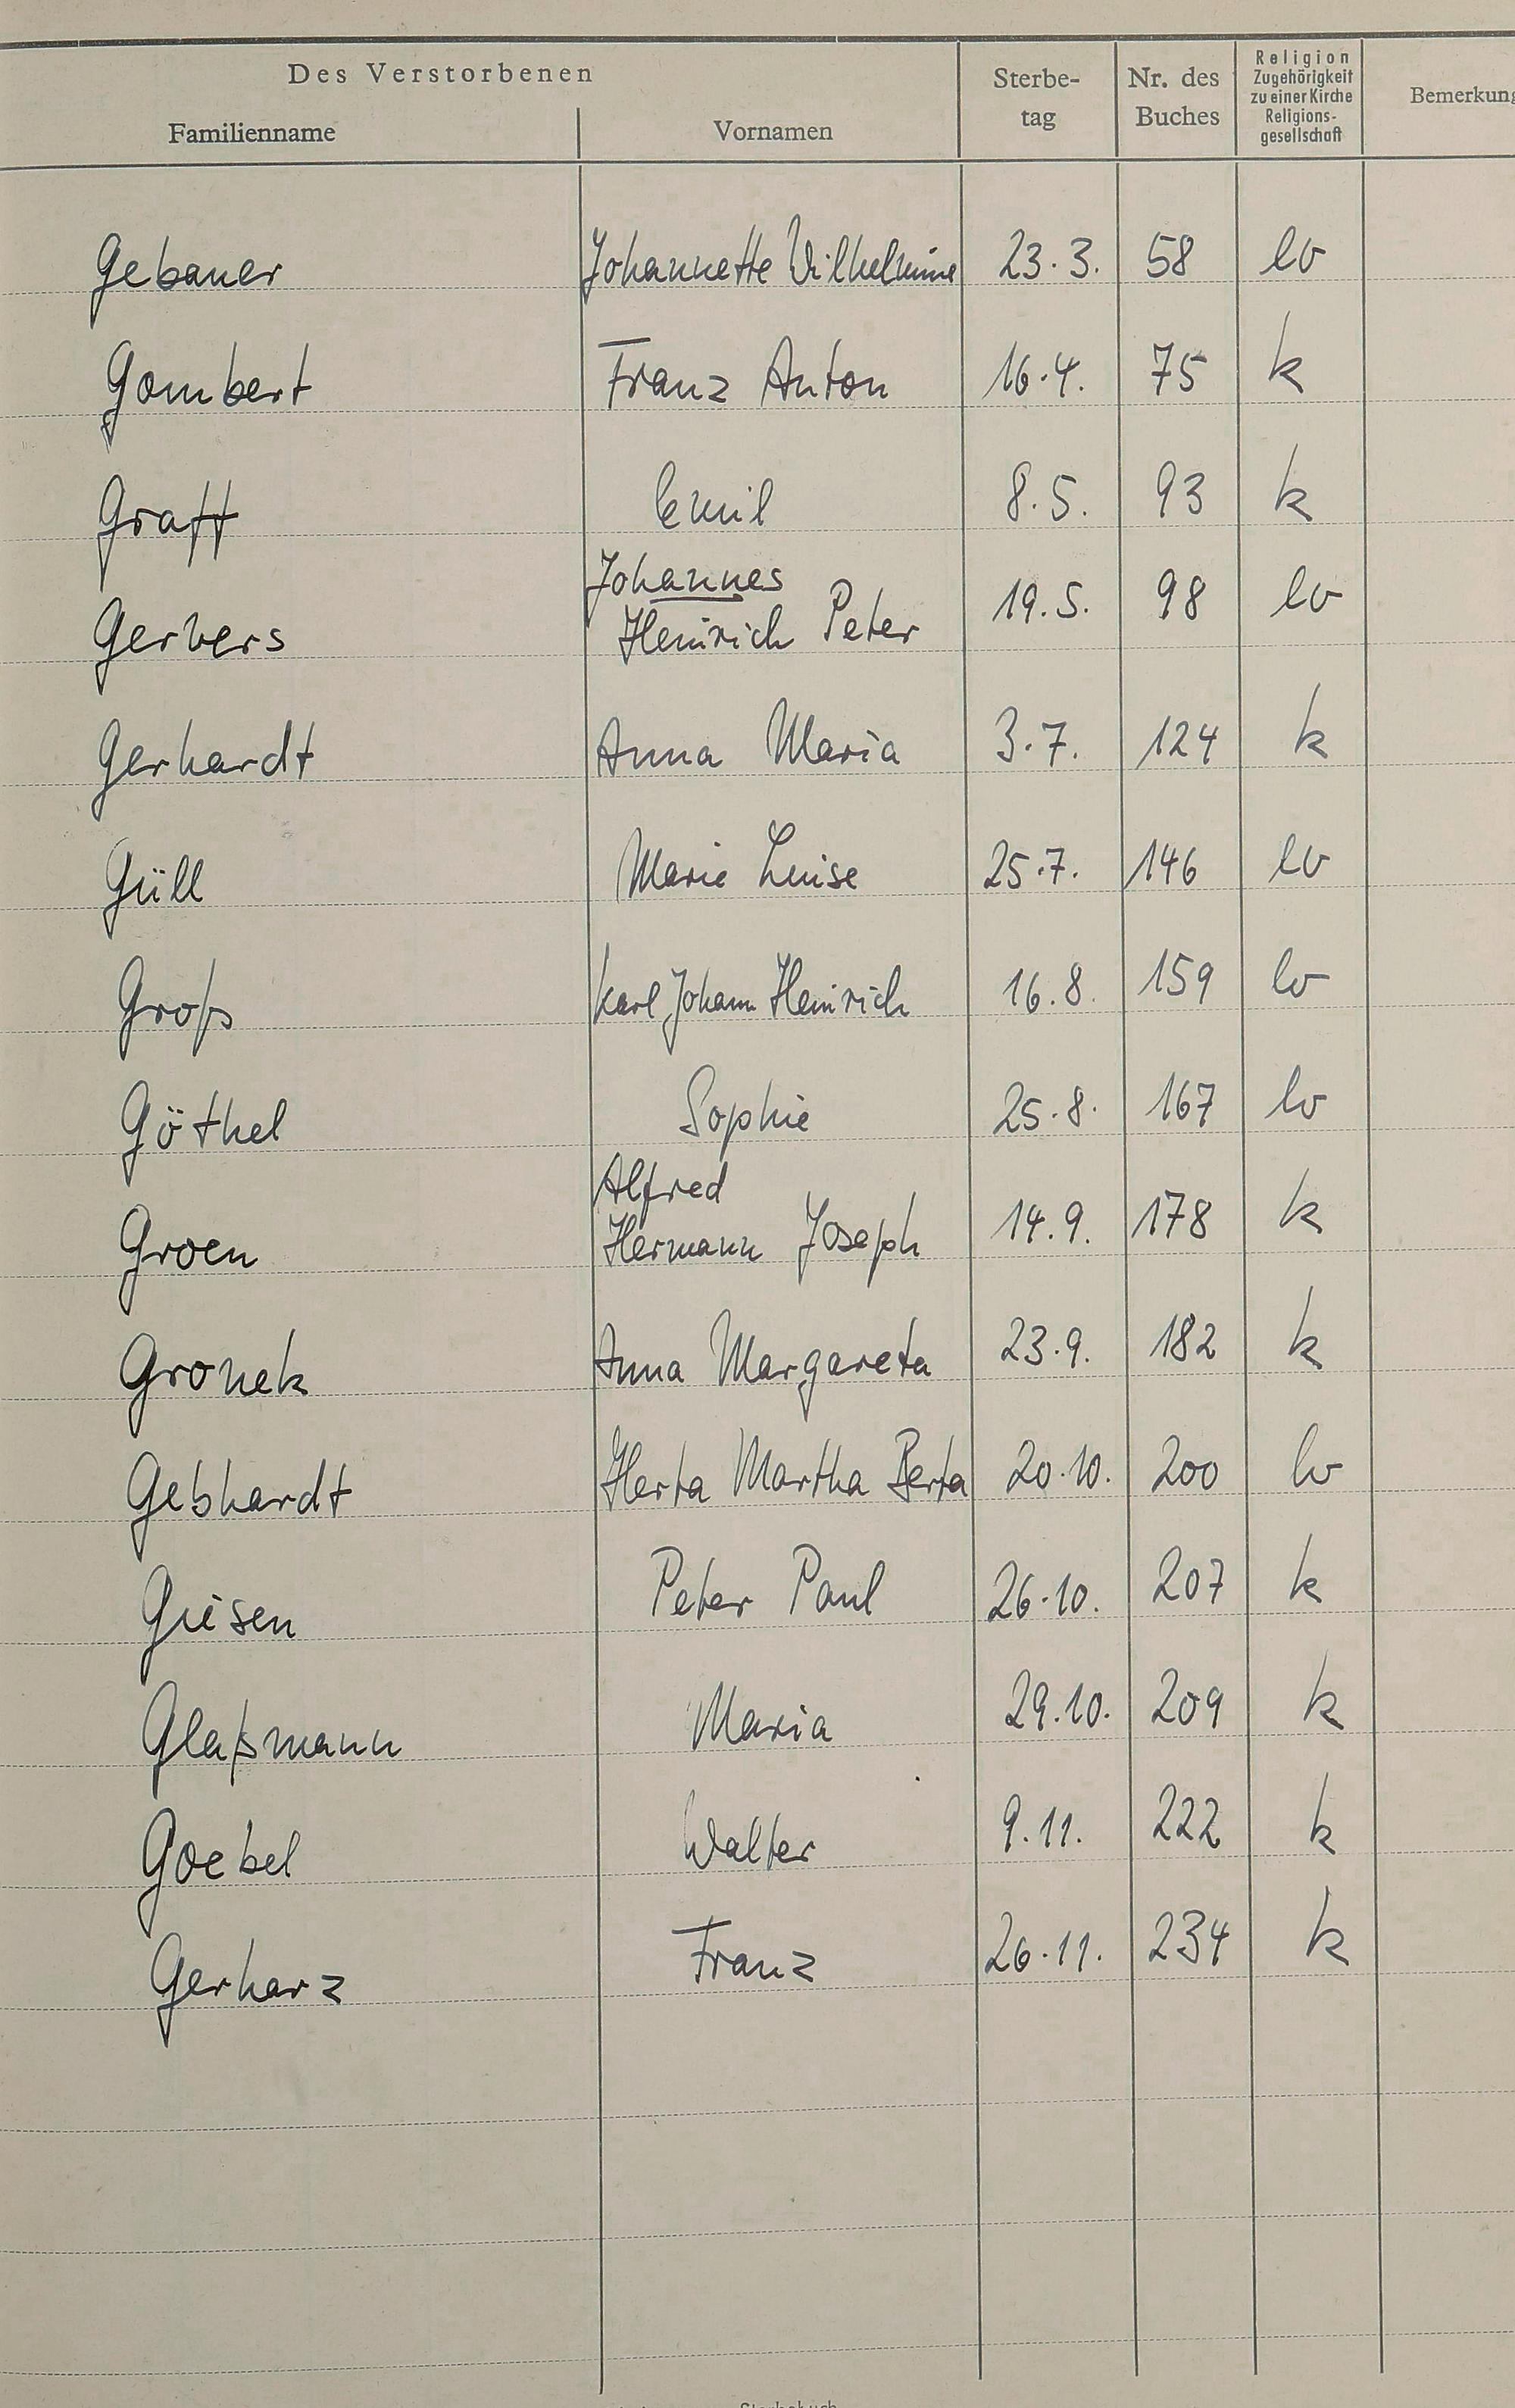 Des Verstorbenen
Familienname Vornamen Sterbe-tag Nr. des Buches Religion Zugehörigkeit zu einer Kirche Religions-gesellschaft Bemerkung
Gebauer Johannette Wilhelmine 23.3. 58 ev
Gombert Franz Anton 16.4. 75 k
Graff Emil 8.5. 93 k
Johannes
Gervers Heinrich Peter 19.5. 98 ev
Gerhardt Anna Maria 3.7. 124 k
Güll Marie Luise 25.7. 146 ev
Groß Karl Johann Heinrich 16.8. 159 ev
Göthel Sophie 25.8. 167 ev
Alfred
Groen Hermann Joseph 14.9. 178 k
Gronek Anna Margareta 23.9. 182 k
Gebhardt Herta Martha Berta 20.10. 200 ev
Giesen Peter Paul 26.10. 207 k
Glaßmann Maria 29.10. 209 k
Goebel Walter 9.11. 222 k
Gerharz Franz 26.11. 234 k